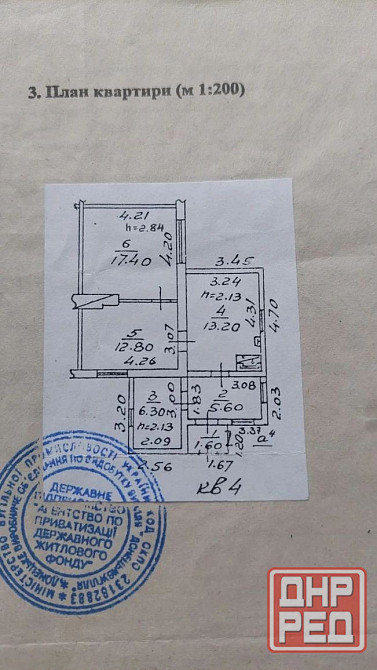 3. План квартири (м 1:200)
4.21
h=2.84
6
17.40
4.20
3.45
3.24
h=2.13
4
13.20
4.31
4.70
5
12.80
4.26
3.07
3.08
3
6.30
h=2.13
2.09
3.20
3.00
1.83
2
5.60
2.03
1
1.60
1.20
3.37
а⁴
2.56
1.67
кв 4
ДЕРЖАВНЕ
ПІДПРИЄМСТВО
"АГЕНТСТВО ПО
ПРИВАТИЗАЦІЇ
ДЕРЖАВНОГО
ЖИТЛОВОГО
ФОНДУ"
МІНІСТЕРСТВО
УКРАЇНИ
КОД
23182883
ДНР
РЕД